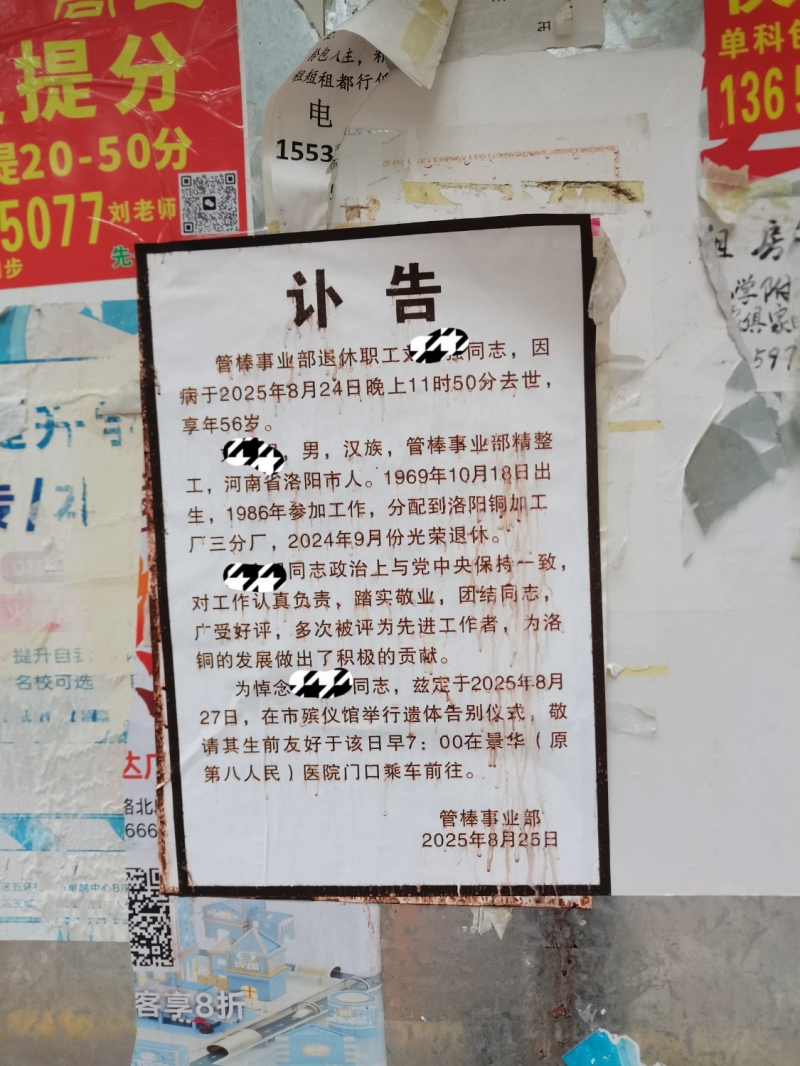 提分
提20-50分
5077 刘老师
先
步
租短租都行
电
1553
单科
1365
房
学附
597
讣告
管棒事业部退休职工 同志，因
病于2025年8月24日晚上11时50分去世，
享年56岁。
，男，汉族，管棒事业部精整
工，河南省洛阳市人。1969年10月18日出
生，1986年参加工作，分配到洛阳铜加工
厂三分厂，2024年9月份光荣退休。
同志政治上与党中央保持一致，
对工作认真负责，踏实敬业，团结同志，
广受好评，多次被评为先进工作者，为洛
铜的发展做出了积极的贡献。
为悼念 同志，兹定于2025年8月
27日，在市殡仪馆举行遗体告别仪式，敬
请其生前友好于该日早7：00在景华（原
第八人民）医院门口乘车前往。
管棒事业部
2025年8月25日
提升自
名校可选
666
客享8折